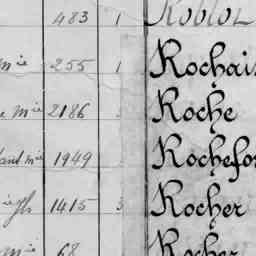 483 1 Roblot
mie 255 1 Rochais
e mie 2186 3 Roche
tant mie 1949 Rochefor
1415 3 Rocher
mie 68 Rocher